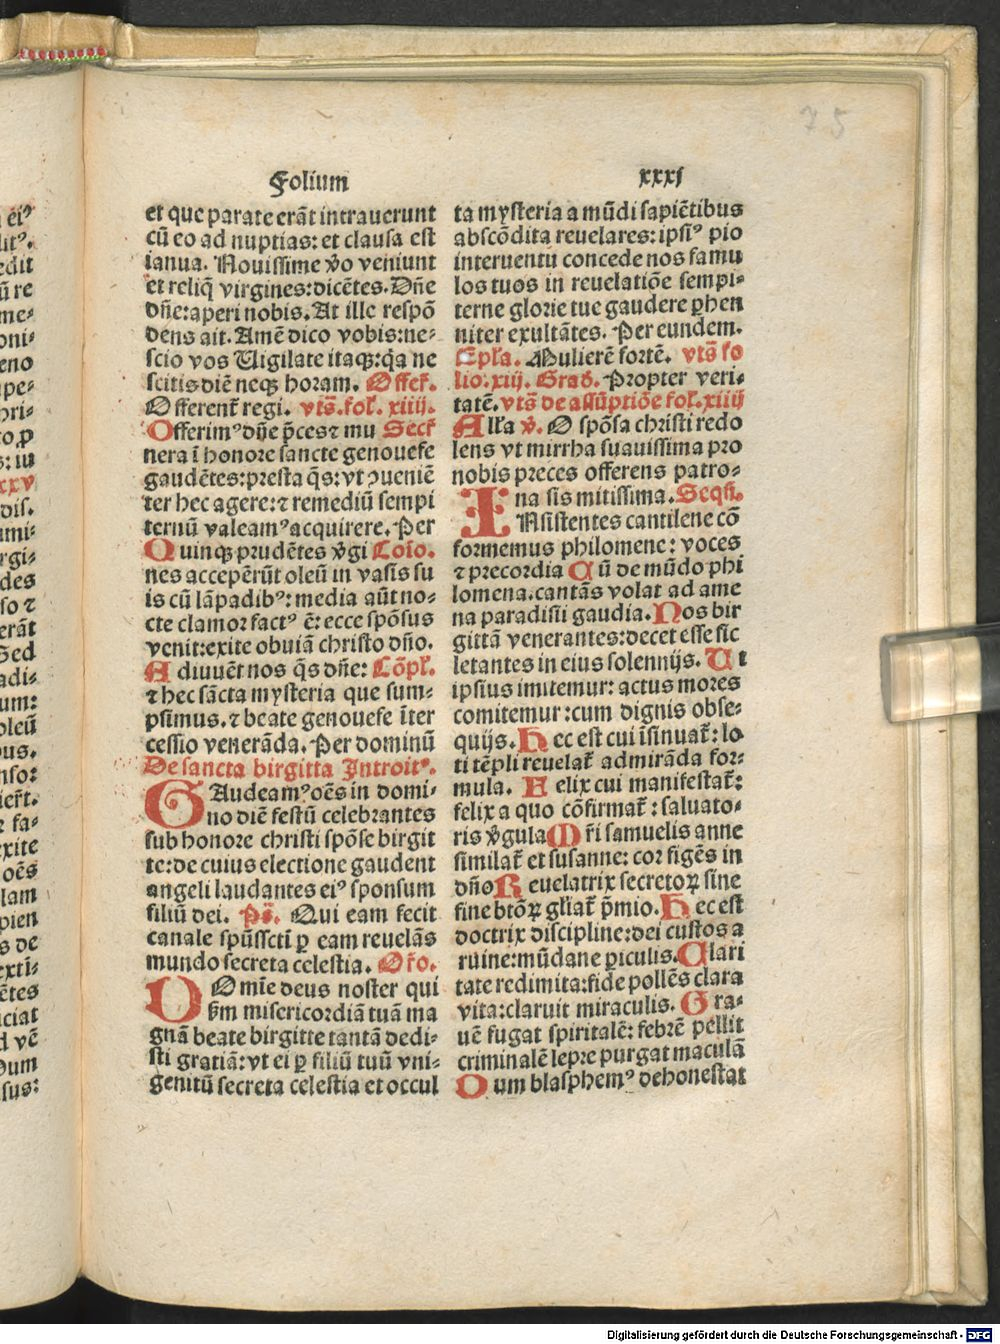 75
Folium xxxj
et que parate erāt intrauerunt
cū eo ad nuptias: et clausa est
ianua. Nouissime v̄o veniunt
et reliq̄ virgines: dicētes. Dn̄e
dn̄e: aperi nobis. At ille respō
dens ait. Amē dico vobis: ne-
scio vos Uigilate itaqꝫ: q̄a ne
scitis diē neqꝫ horam. Offer̄.
Offerent̄ regi. vts̄. fol̄. xiiij.
Offerimꝰ dn̄e p̄ces ⁊ mu Secr̄
nera ī honore sancte genouefe
gaudētes: presta q̄s: vt ꝯueniē
ter hec agere: ⁊ remediū sempi
ternū valeamꝰ acquirere. Per
Quinqꝫ prudētes v̄gi Cōio.
nes accepērūt oleū in vasis su
is cū lāpadibꝰ: media aūt no-
cte clamor factꝰ ē: ecce spōsus
venit: exite obuiā christo dn̄o.
Adiuuēt nos q̄s dn̄e: Cōpl̄.
⁊ hec sācta mysteria que sum-
psimus. ⁊ beate genouefe īter
cessio venerāda. Per dominū
De sancta birgitta Introitꝰ.
GAudeamꝰ oēs in domi-
no diē festū celebrantes
sub honore christi spōse birgit
te: de cuius electione gaudent
angeli laudantes eiꝰ sponsum
filiū dei. Ps̄. Qui eam fecit
canale spūsscti ꝑ eam reuelās
mundo secreta celestia. Or̄o.
DOmīe deus noster qui
s̄m misericordiā tuā ma
gnā beate birgitte tantā dedi-
sti gratiā: vt ei ꝑ filiū tuū vni-
genitū secreta celestia et occul
ta mysteria a mūdi sapiētibus
abscōdita reuelare: ipsiꝰ pio
interuentū concede nos famu
los tuos in reuelatiōe sempi-
terne glorie tue gaudere ꝑhen
niter exultātes. Per eundem.
Epl̄a. Mulierē fortē. vts̄ fo
lio. xiij. Grad̄. Propter veri-
tatē. vts̄ de assūptiōe fol. xiiij
All̄a v̄. O spōsa christi redo
lens vt mirrha suauissima pro
nobis preces offerens patro-
na sis mitissima. Seqn̄.
INsistentes cantilene cō
formemus philomene: voces
⁊ precordia Cū de mūdo phi
lomena. cantās volat ad ame
na paradisii gaudia. Nos bir
gittā venerantes: decet esse sic
letantes in eius solennijs. Ut
ipsius imitemur: actus mores
comitemur: cum dignis obse-
quijs. Hec est cui īsinuat̄: lo
ti tēpli reuelat̄ admirāda for-
mula. Felix cui manifestat̄:
felix a quo cōfirmat̄: saluato-
ris v̄gula Mr̄i samuelis anne
similat̄ et susanne: cor figēs in
dn̄o Reuelatrix secretoꝝ sine
fine btōꝝ gl̄iat̄ p̄mio. Hec est
doctrix discipline: dei custos a
ruine: mūdane ꝑiculis. Clari
tate redimita: fide pollēs clara
vita: claruit miraculis. Gra-
uē fugat spiritalē: febrē pellit
criminalē lepre purgat maculā
Dum blasphemꝰ dehonestat
Digitalisierung gefördert durch die Deutsche Forschungsgemeinschaft - DFG